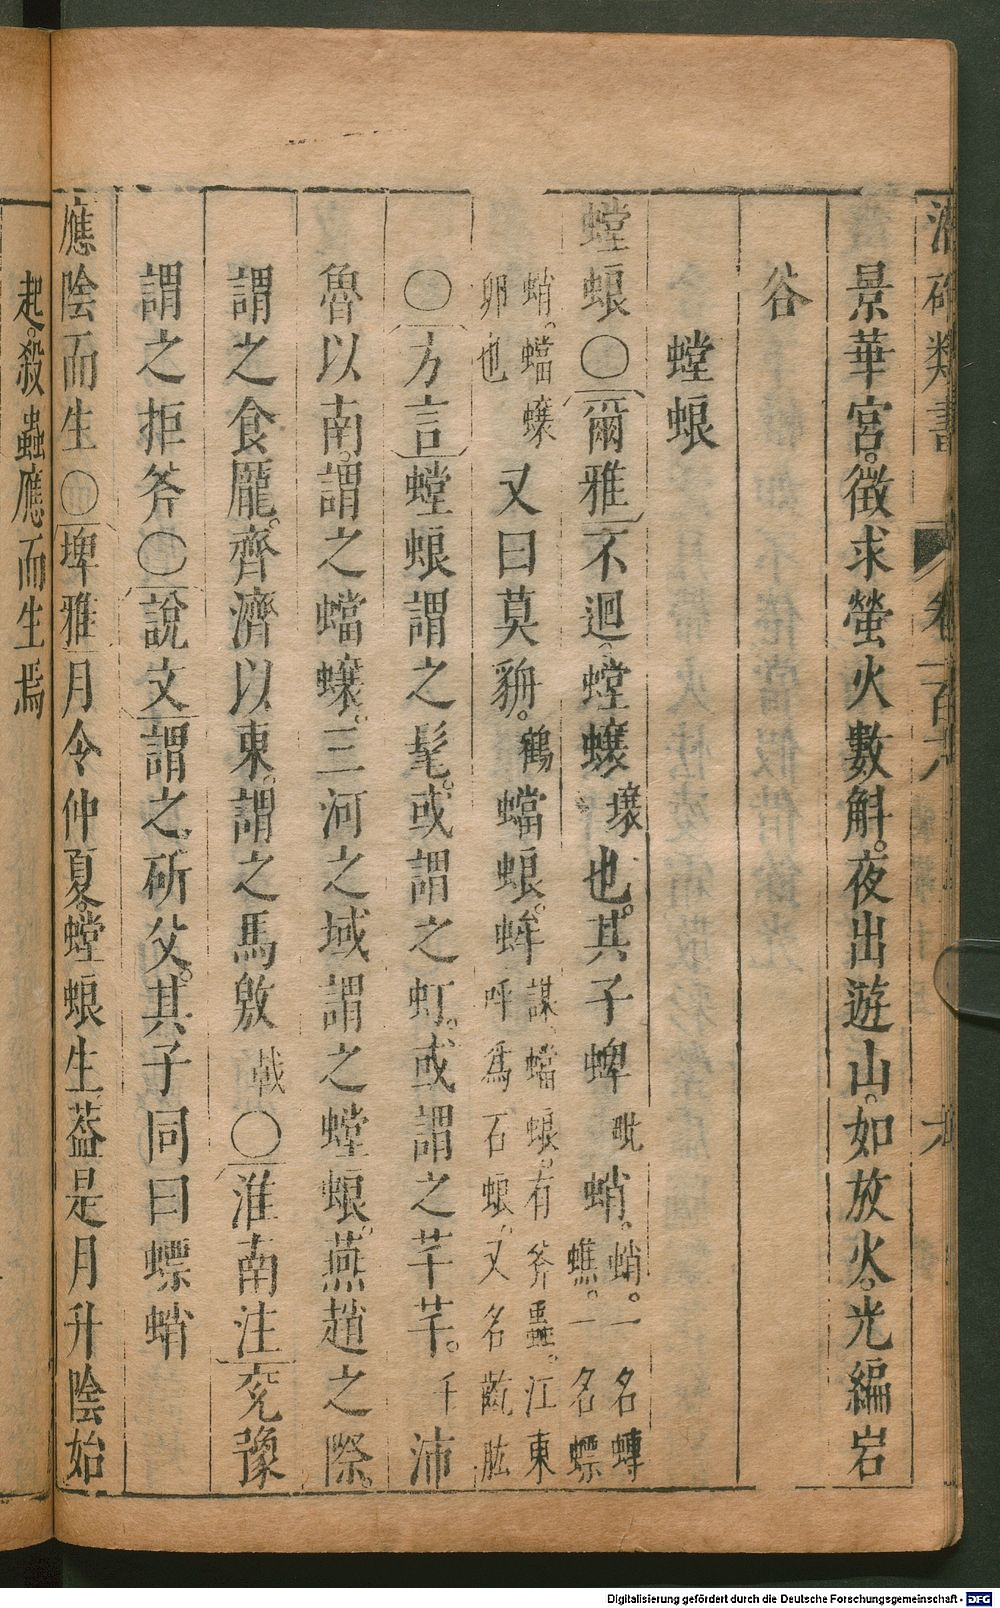 類書 卷一百六
景華宮。徵求螢火數斛。夜出遊山。如放火。光編岩
谷
螳蜋
螳蜋〇爾雅不迴。螳蠰壤也。其子蜱毗蛸。蛸。一名䗚蟭。一名螵
蛸。蟷蠰卵也又曰莫貈。鶴蟷蜋。蛑謀。蟷蜋。有斧蟲。江東呼為石蜋。又名齕肬
〇方言螳蜋謂之髦。或謂之虰。或謂之芊芊。千沛
魯以南。謂之蟷蠰。三河之域謂之螳蜋。燕趙之際。
謂之食厖。齊濟以東。謂之馬敫戟〇淮南注兗豫
謂之拒斧〇說文謂之斫父。其子同曰螵蛸
應陰而生〇埤雅月令仲夏。螳蜋生。葢是月升陰始
起。殺蟲應而生焉
Digitalisierung gefördert durch die Deutsche Forschungsgemeinschaft - DFG